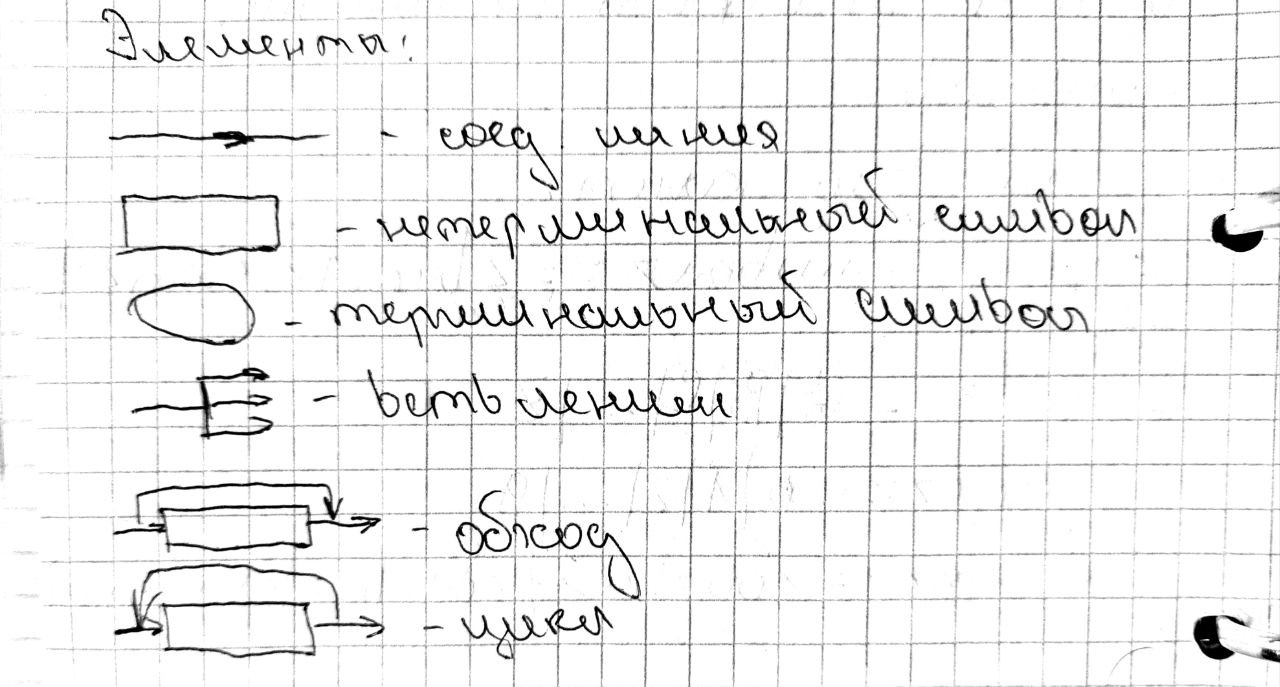 Элементы:
- соед. линия
- нетерминальный символ
- терминальный символ
- ветвлении
- обход
- цикл